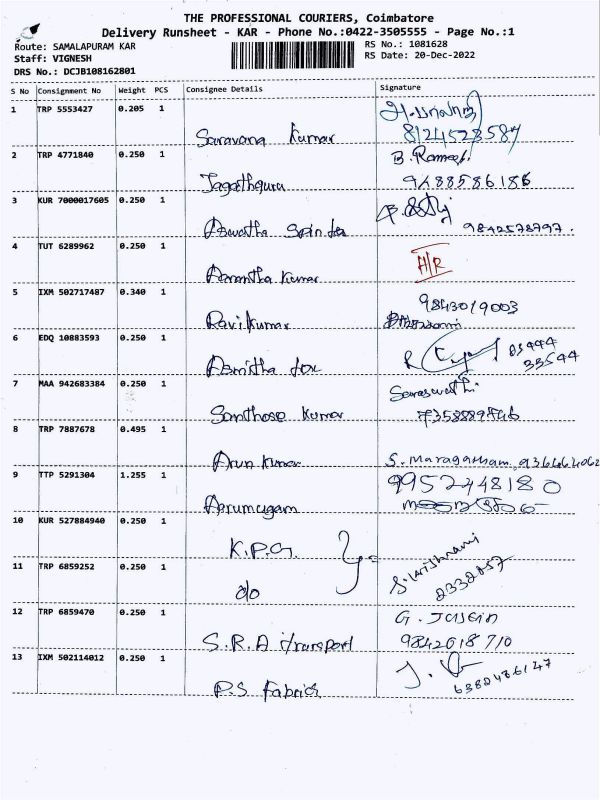 THE PROFESSIONAL COURIERS, Coimbatore
Delivery Runsheet - KAR - Phone No.:0422-3505555 - Page No.:1
Route: SAMALAPURAM KAR
RS No.: 1081628
Staff: VIGNESH
RS Date: 20-Dec-2022
DRS No.: DCJB108162801
S No Consignment No Weight PCS Consignee Details Signature
1 TRP 5553427 0.205 1
Saravana Kumar 8124528587
2 TRP 4771840 0.250 1 B. Ramesh
Jagathguru 9488586186
3 KUR 7000017605 0.250 1
Aswatha 9842578797.
4 TUT 6289962 0.250 1 A/R
Anantha Kumar
5 IXM 502717487 0.340 1 9843019003
Ravi Kumar
6 EDQ 10883593 0.250 1
Asmitha tex
7 MAA 942683384 0.250 1 Saraswathi
Santhose Kumar
8 TRP 7887678 0.495 1
Arun Kumar S. Maragatham
9 TTP 5291304 1.255 1 9952448180
Aarumugam
10 KUR 527884940 0.250 1
K.P.G.
11 TRP 6859252 0.250 1
do
12 TRP 6859470 0.250 1 G.
S.R.A transport 9842618710
13 IXM 502114012 0.250 1
P.S Fabrics